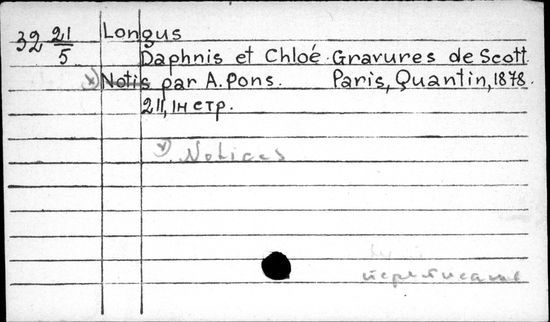 32 21/5 Longus
Daphnis et Chloé. Gravures de Scott.
*) Notis par A. Pons. Paris, Quantin, 1878.
211, 1н стр.
*) Notices
переписано